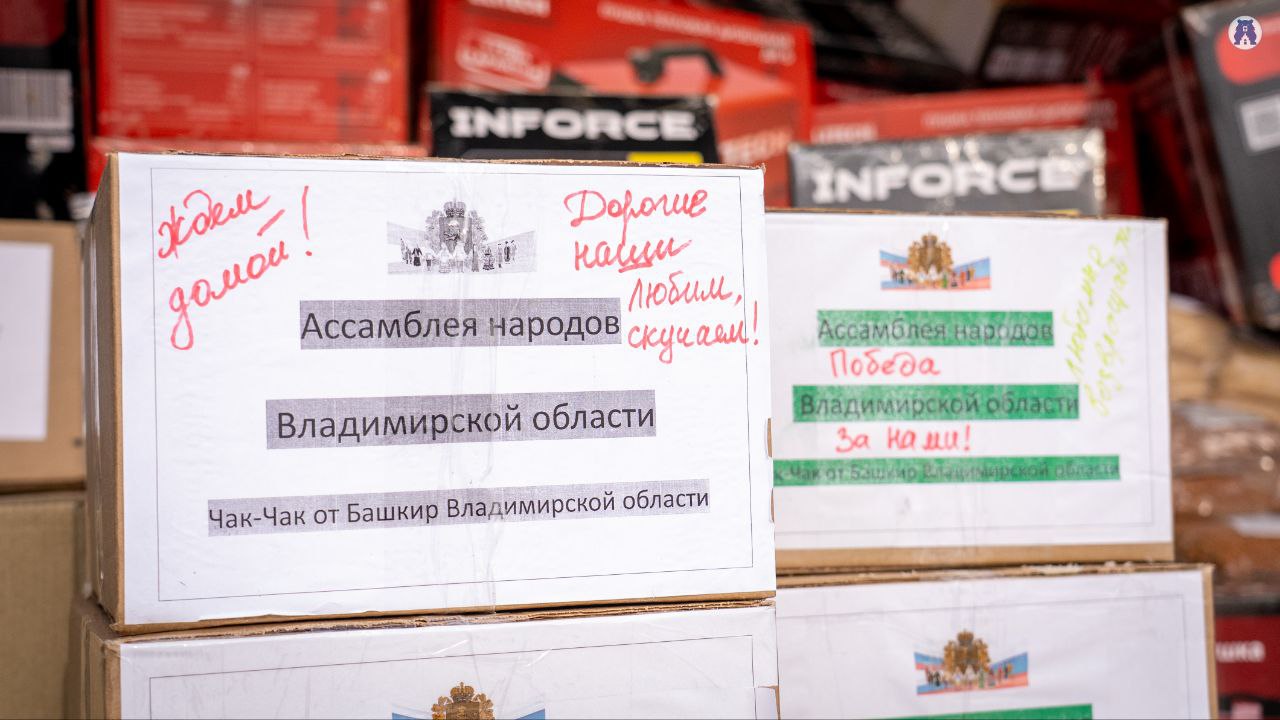 INFORCE
INFORCE
Ждем
домой!
Дорогие
наши
любим,
скучаем!
Ассамблея народов
Владимирской области
Чак-Чак от Башкир Владимирской области
Ассамблея народов
Победа
Владимирской области
За нами!
-Чак от Башкир Владимирской области